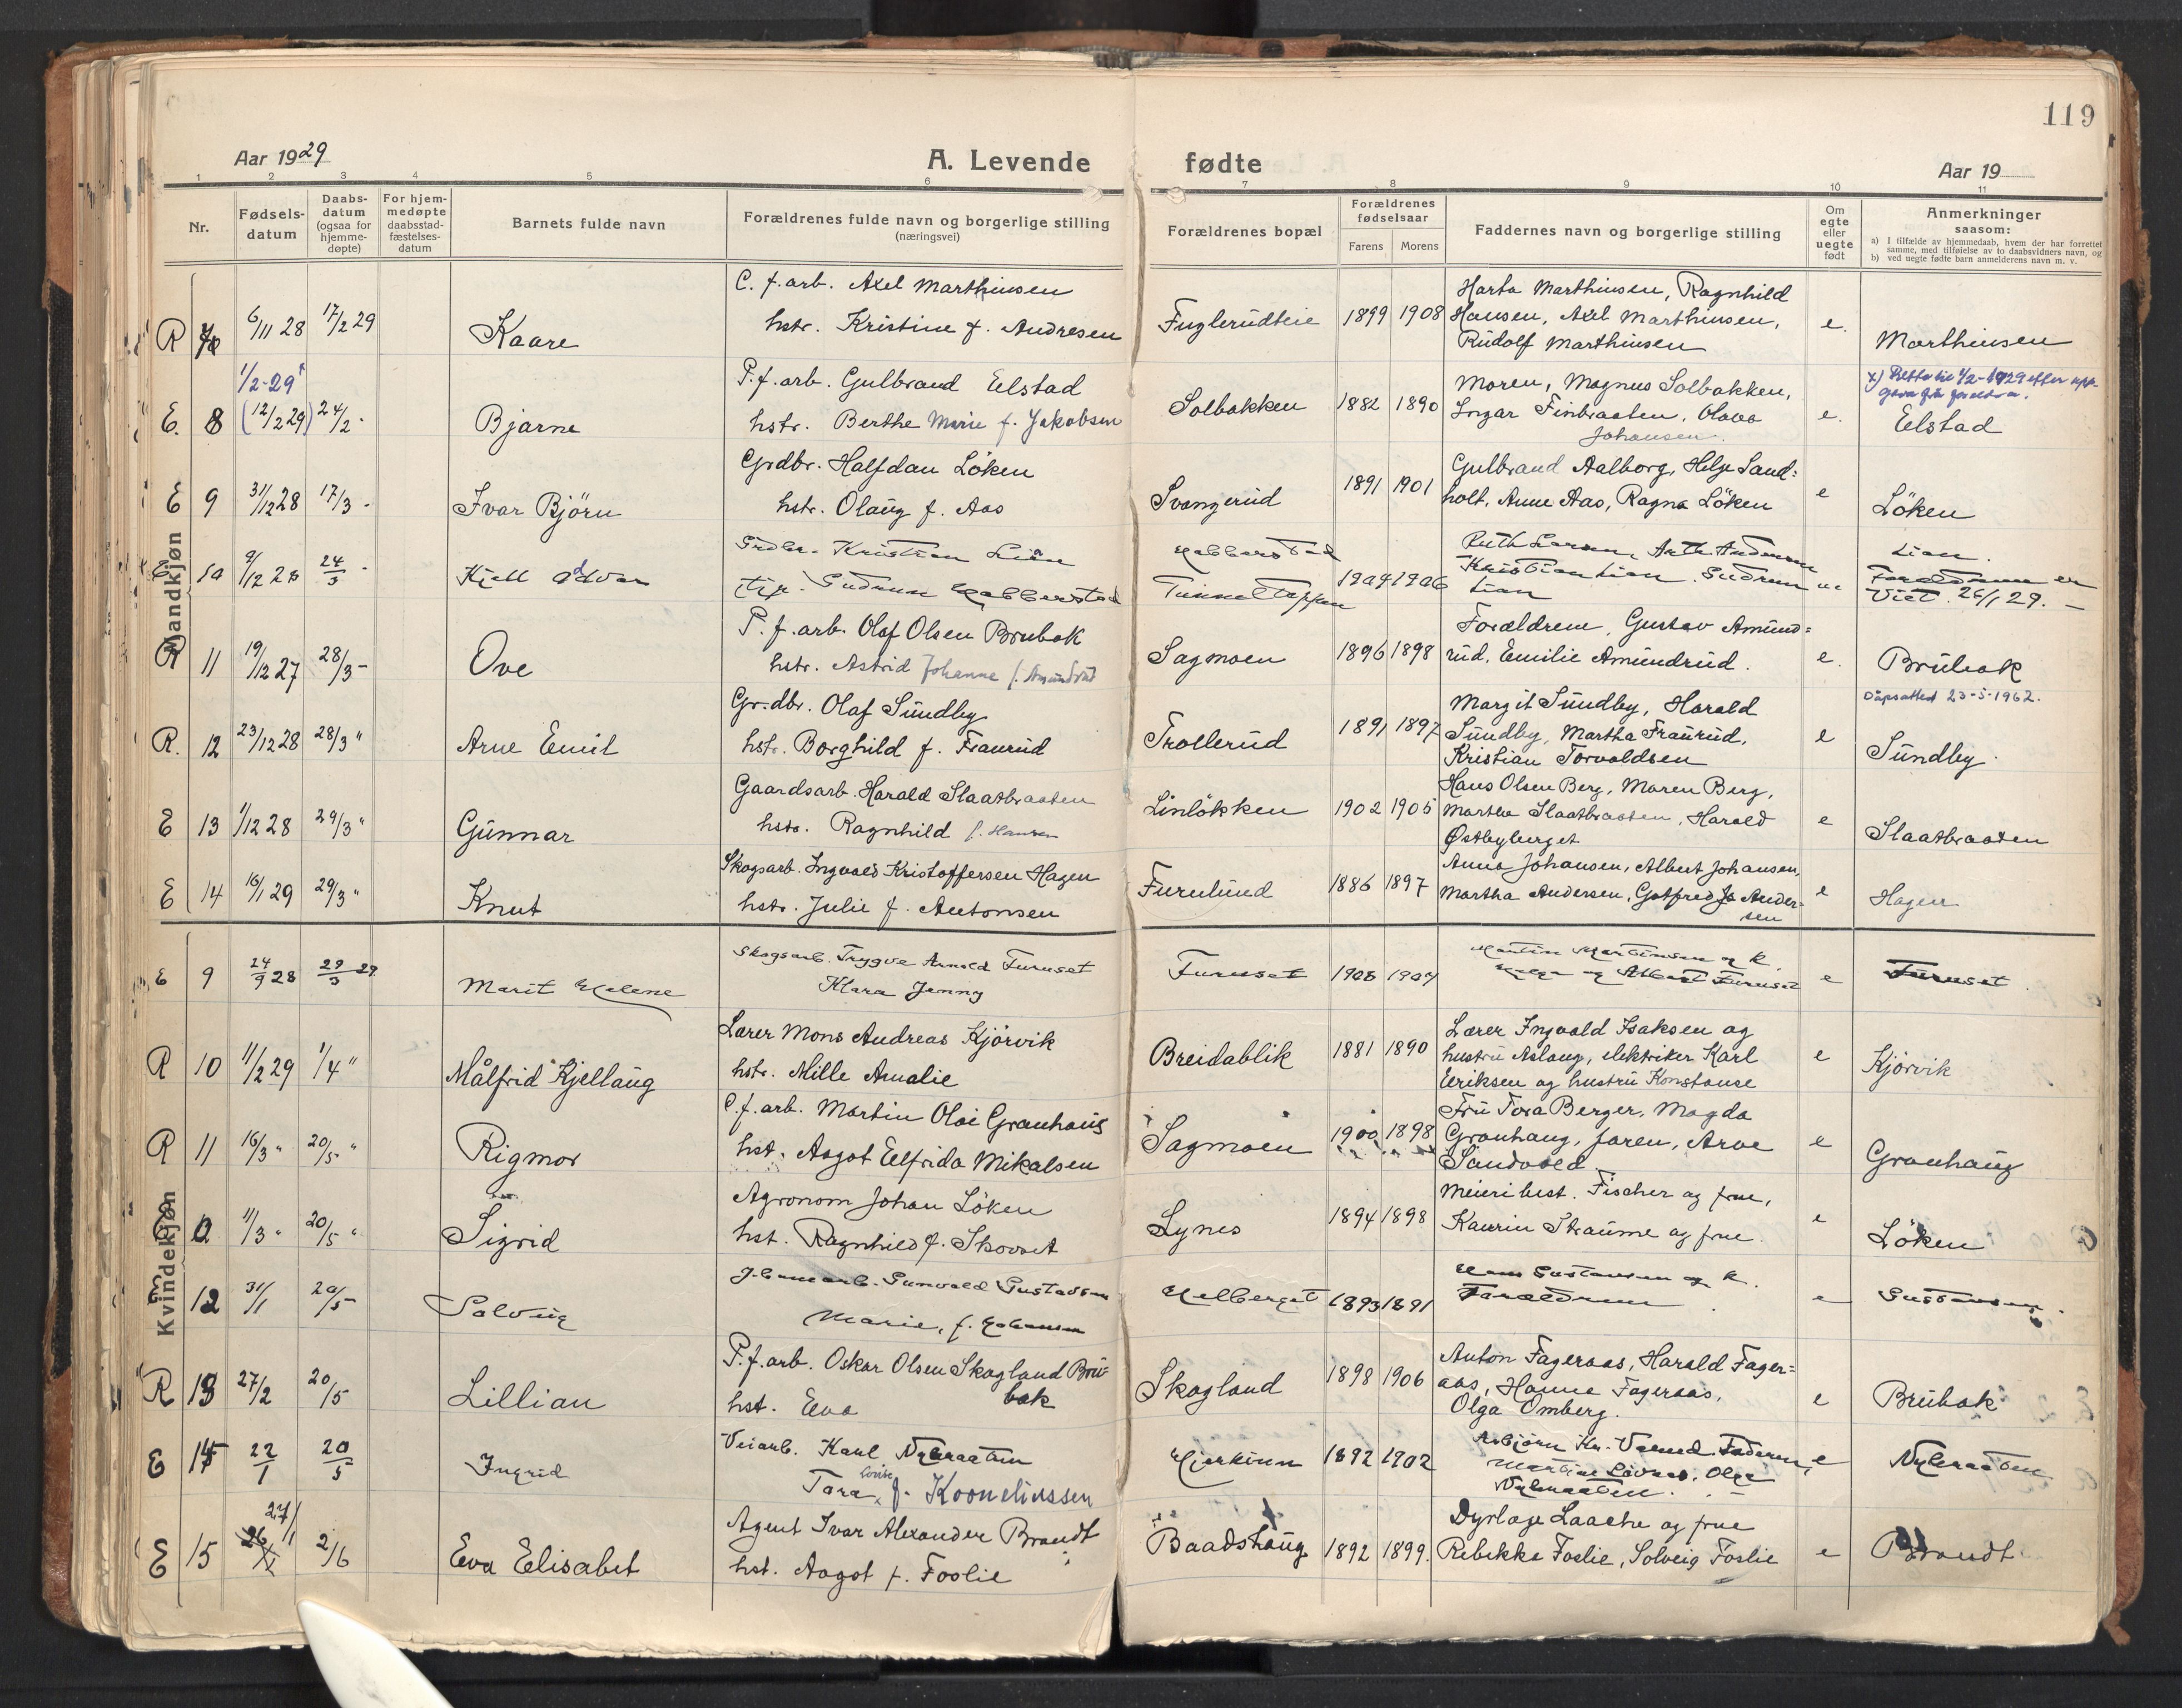 119
Aar 1929
A. Levende fødte
Aar 19
1 2 3 4 5 6 7 8 9 10 11
Nr.
Fødsels-
datum
Daabs-
datum
(ogsaa for
hjemme-
døpte)
For hjem-
medøpte
daabsstad-
fæstelses-
datum
Barnets fulde navn
Forældrenes fulde navn og borgerlige stilling
(næringsvei)
Forældrenes bopæl
Forældrenes
fødselsaar
Farens Morens
Faddernes navn og borgerlige stilling
Om
egte
eller
uegte
født
Anmerkninger
saasom:
a) I tilfælde av hjemmedaab, hvem der har forrettet
samme, med tilføielse av to daabsvidners navn, og
b) ved uegte fødte barn anmelderens navn m. v.
Mandkjøn
R 7 6/11 28 17/2 29 Kaare
C. f. arb. Axel Marthinsen
hstr. Kristine f. Andresen
Fuglerudteie 1899 1908
Marthinsen, Ragnhild
Hansen, Axel Marthinsen,
Rudolf Marthinsen
e. Marthinsen
1/2-29
E. 8 (12/2 29) 24/2 - Bjarne
P. f. arb. Gulbrand Elstad
hstr. Berthe Marie f. Jakobsen
Solbakken 1882 1890
Moren, Magnus Solbakken,
Ingar Finbraaten, Olava
Johansen.
e.
x) Rettet til 1/2-1929 efter opp-
gave fra foreldra.
Elstad
E 9 31/12 28 17/3 - Ivar Björn
Grdbr. Halfdan Löken
hstr. Olaug f. Aas
Svangerud 1891 1901
Gulbrand Aalborg, Helge Sand=
holt, Anne Aas, Ragna Löken
e Löken
E 10 9/12 28 24/3 - Kjell Advar
Grdbr. Kristian Lian
tje. Gudrun Habberstad
Habberstad
Tunneltoppen 1904 1906
Ruth Larsen, Arth. Andersen
Kristian Lian. Gudrun
Lian
ue
Lian.
Forældrene er
Viet. 26/1 29. -
R 11 19/12 27 28/3 - Ove
P. f. arb. Olaf Olsen Brubak
hstr. Astrid Johanne f. Amundrud
Sagmoen 1896 1898
Forældrene, Gustav Amund=
rud, Emilie Amundrud.
e. Brubak
Dåpsattest 23-5-1962.
R. 12 23/12 28 28/3 " Arne Emil
Gr.dbr. Olaf Sundby
hstr. Borghild f. Fraurud
Trollerud 1891 1897
Margit Sundby, Harald
Sundby, Martha Fraurud,
Kristian Torvaldsen
e Sundby.
E 13 1/12 28 29/3 " Gunnar
Gaardsarb. Harald Slaatbraaten
hstr. Ragnhild f. Hansen
Linlökken 1902 1905
Hans Olsen Berg, Maren Berg,
Martha Slaatbraaten, Harald
Østbyberget
e Slaatbraaten
E 14 16/1 29 29/3 " Knut
Skogsarb. Ingvald Kristoffersen Hagen
hstr. Julie f. Antonsen
Furulund 1886 1897
Anna Johansen, Albert Johansen,
Martha Andersen, Gotfred Ander-
sen
e Hagen
Kvindekjøn
E 9 24/9 28 29/3 29 Marit Helene
Skogsarb. Trygve Arnold Furuset
Klara Jenny
Furuset 1908 1907
Martin Martinsen og k.
Helga og Albert Furuset
e Furuset.
R 10 11/2 29 1/4 " Målfrid Kjellaug
Lærer Mons Andreas Kjörvik
hstr. Mille Amalie
Breidablik 1881 1890
Lærer Ingvald Isaksen og
hustru Aslaug, elektriker Karl
Eriksen og hustru Konstanse
e Kjörvik
R 11 16/3 " 20/5 " Rigmor
C. f. arb. Martin Olai Granhaug
hst. Aagot Elfrida Mikalsen
Sagmoen 1900 1898
Fru Tora Berger, Magda
Granhaug, faren, Arve
Sandvold
e Granhaug
11/3 " 20/5 " Sigrid
Agronom Johan Löken
hst. Ragnhild f. Skovset
Lynes 1894 1898
Meieribest. Fischer og frue,
Kaurin Straume og frue.
e Löken
E 12 31/1 20/5 - Solveig
Gunvald Gustavsen
Marie, f. Johansen
Helberget 1893 1891
Hans Gustavsen og k.
Forældrene.
e Gustavsen.
R 13 27/2 20/5 Lillian
P. f. arb. Oskar Olsen Skogland Bru=
bak
hst. Eva
Skogland 1898 1906
Anton Fageraas, Harald Fager=
aas, Hanna Fageraas,
Olga Omberg.
e Brubak
E 14 22/1 20/5 Ingrid
Veiarb. Karl Nybraaten
Tora Lovise f. Korneliussen
Hjerkinn 1892 1902
Asbjörn Kr. Faderen,
Martine Lövnes, Olga
Nybraaten. -
e Nybraaten
27/1
E 15 26/1 2/6 Eva Elisabet
Agent Ivar Alexander Brandt
hst. Aagot f. Foslie
Baadshaug 1892 1899.
Dyrlæge Laache og frue
Rebekka Foslie, Solveig Foslie
e Brandt